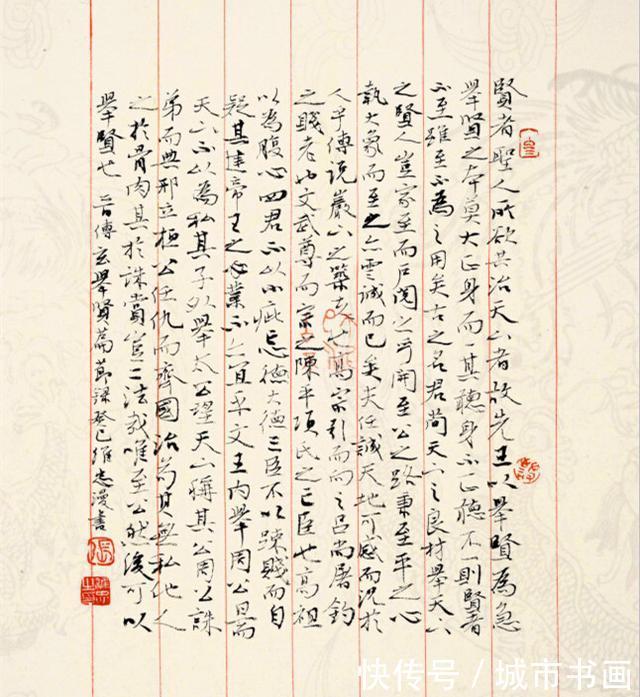 賢者聖人所欲共治天下者故先王以舉賢為急
舉賢之本莫大正身而一其聽身不正聽不一則賢者
不至雖至不為之用矣古之名君簡天下之良材舉天下
之賢人豈家至而戶閱之乎開至公之路秉至平之心
執大象而至之亦雲誠而已矣夫任誠天地可感而況於
人乎傅說巖下之築夫也高宗引而相之呂尚屠釣
之賤老也文武尊而宗之陳平項氏之亡臣也高祖
以為腹心四君不以小疵忘德大德三臣不以疎賤而自
疑其建帝王之業不亦宜乎文王內舉周公旦而
天下不以為私其子外舉太公望天下稱其公周公誅
弟而典刑立桓公任仇而齊國治苟其無私他人
之於骨肉其於誅賞豈二法哉唯至公然後可以
舉賢也 晉傅玄舉賢篇節錄癸巳維忠漫書
快传号/城市书画